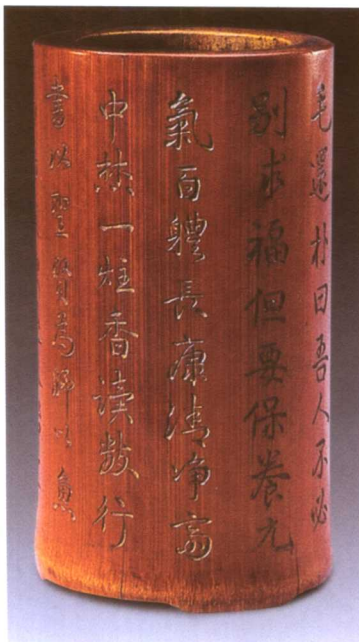 毛還朴曰吾人不必
別求福但要保養元
氣百體長康清净斋
中焚一炷香读数行
書以聖賢為師以魚